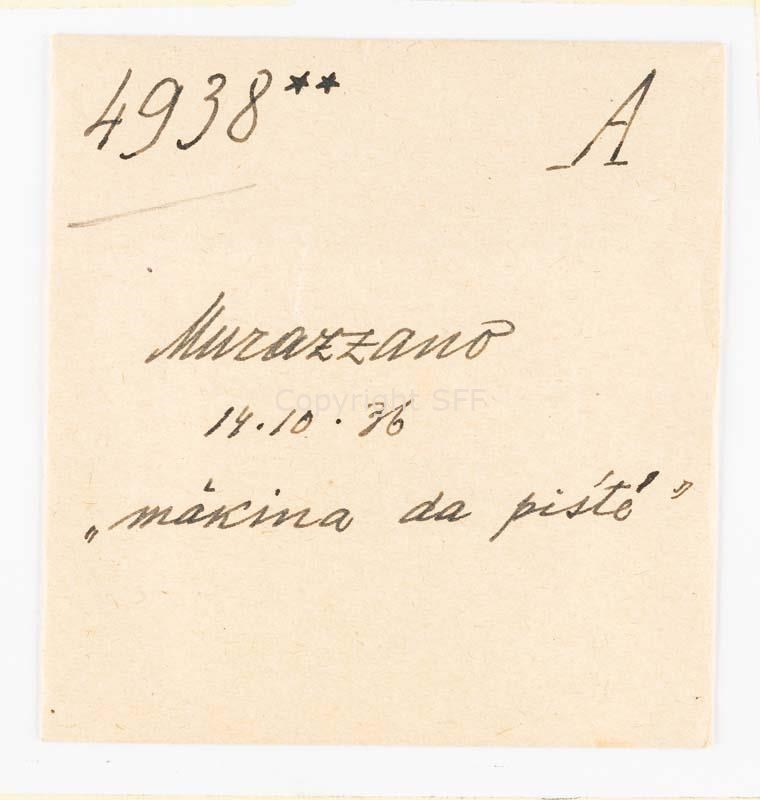 4938** A
Murazzano
Copyright SFF
14.10.36
„mákina da pišté”